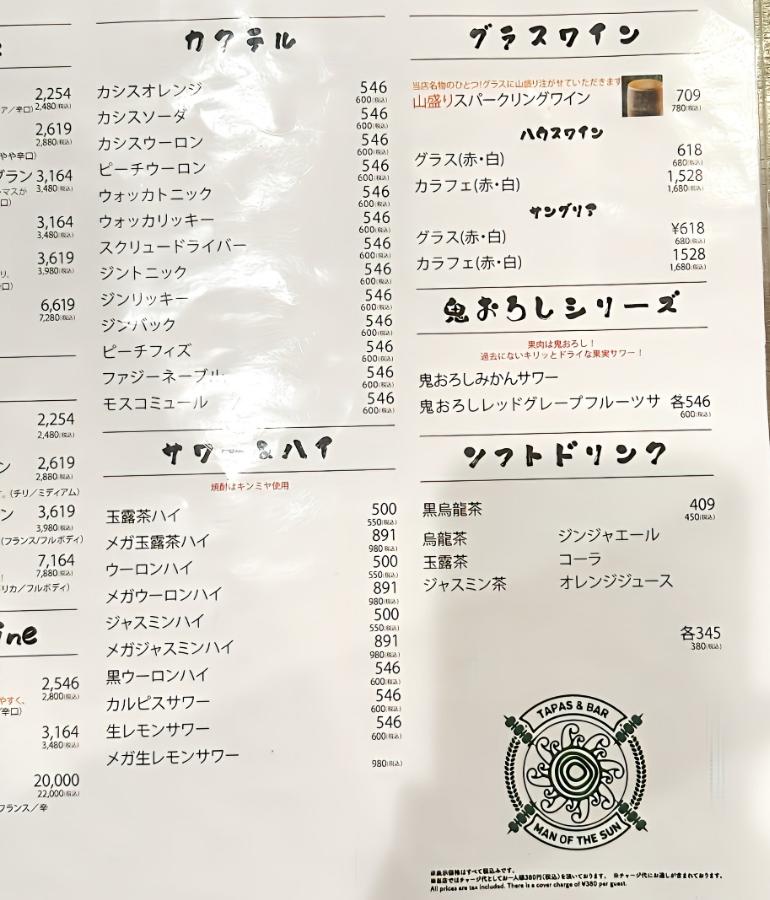 2,254
2,480(税込)
ア／辛口)
2,619
2,880(税込)
やや辛口)
グラン 3,164
3,480(税込)
ーマスか
口)
3,164
3,480(税込)
3,619
3,980(税込)
リ、
口)
6,619
7,280(税込)
2,254
2,480(税込)
ン 2,619
2,880(税込)
。(チリ／ミディアム)
ン 3,619
3,980(税込)
(フランス/フルボディ)
7,164
7,880(税込)
リカ／フルボディ)
ine
2,546
2,800(税込)
やすく、
辛口)
3,164
3,480(税込)
20,000
22,000(税込)
フランス／辛
カクテル
カシスオレンジ 546
600(税込)
カシスソーダ 546
600(税込)
カシスウーロン 546
600(税込)
ピーチウーロン 546
600(税込)
ウォッカトニック 546
600(税込)
ウォッカリッキー 546
600(税込)
スクリュードライバー 546
600(税込)
ジントニック 546
600(税込)
ジンリッキー 546
600(税込)
ジンバック 546
600(税込)
ピーチフィズ 546
600(税込)
ファジーネーブル 546
600(税込)
モスコミュール 546
600(税込)
サワー&ハイ
焼酎はキンミヤ使用
玉露茶ハイ 500
550(税込)
メガ玉露茶ハイ 891
980(税込)
ウーロンハイ 500
550(税込)
メガウーロンハイ 891
980(税込)
ジャスミンハイ 500
550(税込)
メガジャスミンハイ 891
980(税込)
黒ウーロンハイ 546
600(税込)
カルピスサワー 546
600(税込)
生レモンサワー 546
600(税込)
メガ生レモンサワー 980(税込)
グラスワイン
当店名物のひとつ!グラスに山盛り注がせていただきます
山盛りスパークリングワイン 709
780(税込)
ハウスワイン
グラス(赤・白) 618
680(税込)
カラフェ(赤・白) 1,528
1,680(税込)
サングリア
グラス(赤・白) ¥618
680(税込)
カラフェ(赤・白) 1528
1,680(税込)
鬼おろしシリーズ
果肉は鬼おろし！
過去にないキリッとドライな果実サワー！
鬼おろしみかんサワー
鬼おろしレッドグレープフルーツサ 各546
600(税込)
ソフトドリンク
黒烏龍茶 409
450(税込)
烏龍茶 ジンジャエール
玉露茶 コーラ
ジャスミン茶 オレンジジュース
各345
380(税込)
TAPAS & BAR
MAN OF THE SUN
※表示価格はすべて税込みです。
※当店ではチャージ代としてお一人様380円(税込)を頂いております。 ※チャージ代にお通しが含まれております。
All prices are tax included. There is a cover charge of ¥380 per guest.